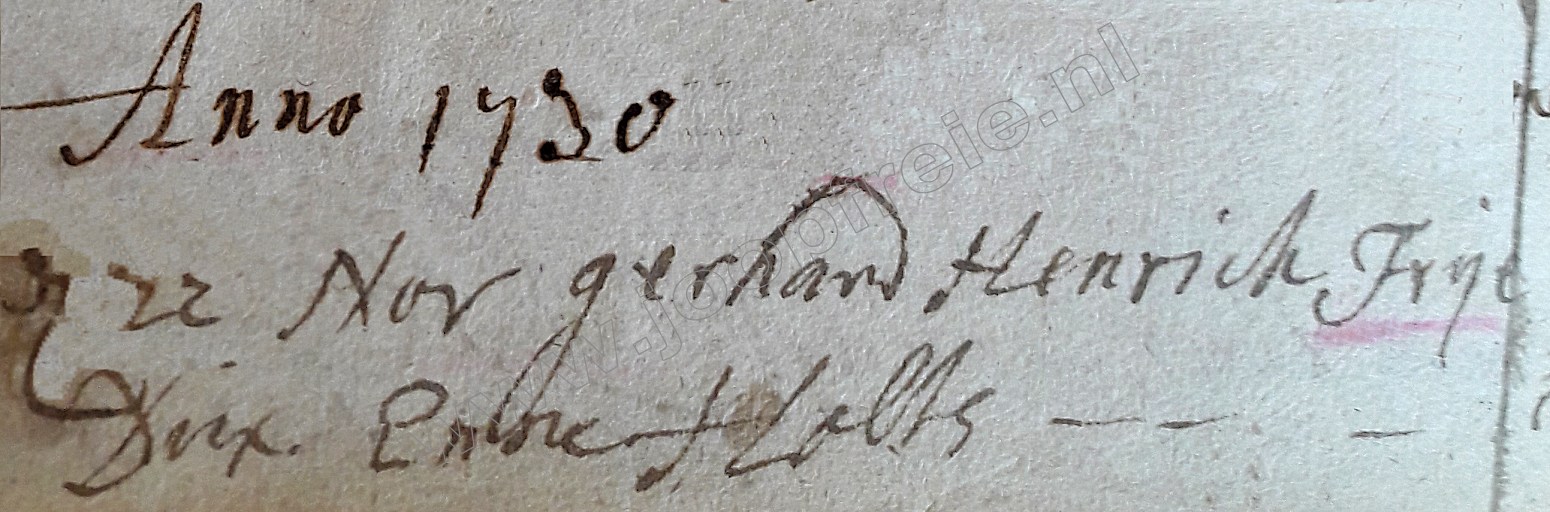 Anno 1730
22 Nov gerhard Henrich Frye
Dux. Enne Holths — — —
www.jonpreie.nl